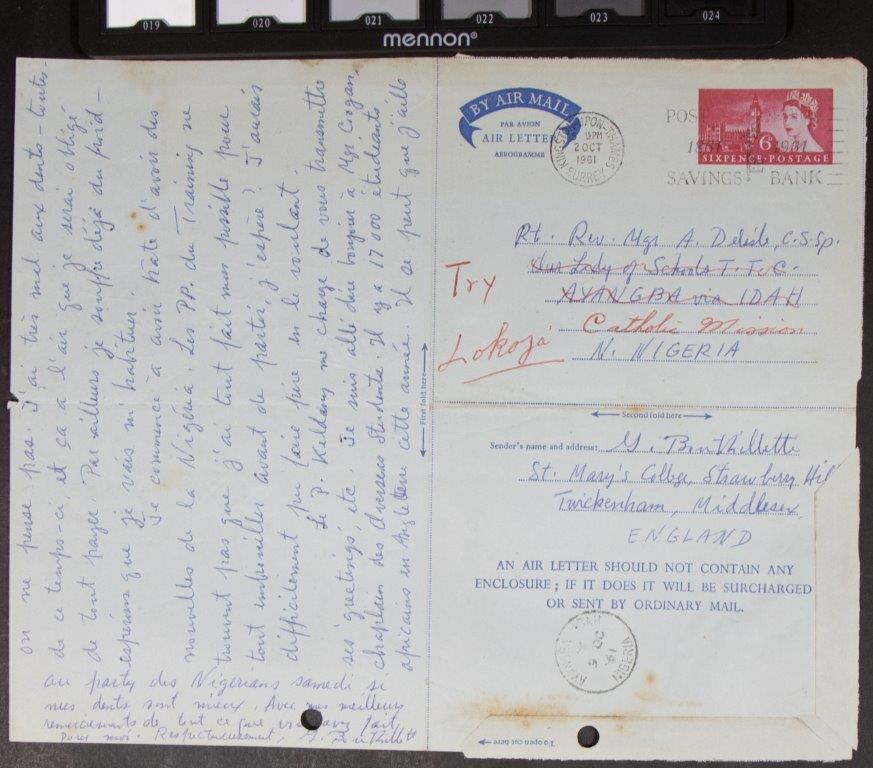 019 020 021 022 023 024
mennon®
on ne pense pas. J'ai très mal aux dents - toutes -
de ce temps-ci, et ça a l'air que je serai obligé
de tout payer. Par ailleurs je souffre déjà du froid -
espérons que je vais m'habituer.
Je commence à avoir hâte d'avoir des
nouvelles de la Nigéria. Les PP. du Training ne
trouvent pas que j'ai tout fait mon possible pour
tout embrouiller avant de partir, j'espère? J'aurais
difficilement pu faire pire en le voulant.
Le P. me charge de vous transmettre
ses greetings, etc. Je suis allé dire bonjour à Mgr Cogan,
chaplain des Overseas Students. Il y a 17 000 étudiants
africains en Angleterre cette année. Il se peut que j'aille
au party des Nigerians samedi si
mes dents sont mieux. Avec mes meilleurs
remerciements de tout ce que vous avez fait
pour moi. Respectueusement, G.
First fold here
BY AIR MAIL
PAR AVION
AIR LETTER
AEROGRAMME
KINGSTON-UPON-THAMES
PM
2 OCT
1961
SURREY
POST
1861 1961
SAVINGS BANK
6D
SIXPENCE·POSTAGE
Rt. Rev. Mgr A. Delisle, C.S.Sp.
Our Lady of Schools T.T.C.
AYANGBA via IDAH
Catholic Mission
N. NIGERIA
Try
Lokoja
Second fold here
Sender's name and address: G. Bouthillette
St. Mary's College, Strawberry Hill
Twickenham, Middlesex
ENGLAND
AN AIR LETTER SHOULD NOT CONTAIN ANY
ENCLOSURE; IF IT DOES IT WILL BE SURCHARGED
OR SENT BY ORDINARY MAIL.
IDAH
OC
61
NIGERIA
To open cut here